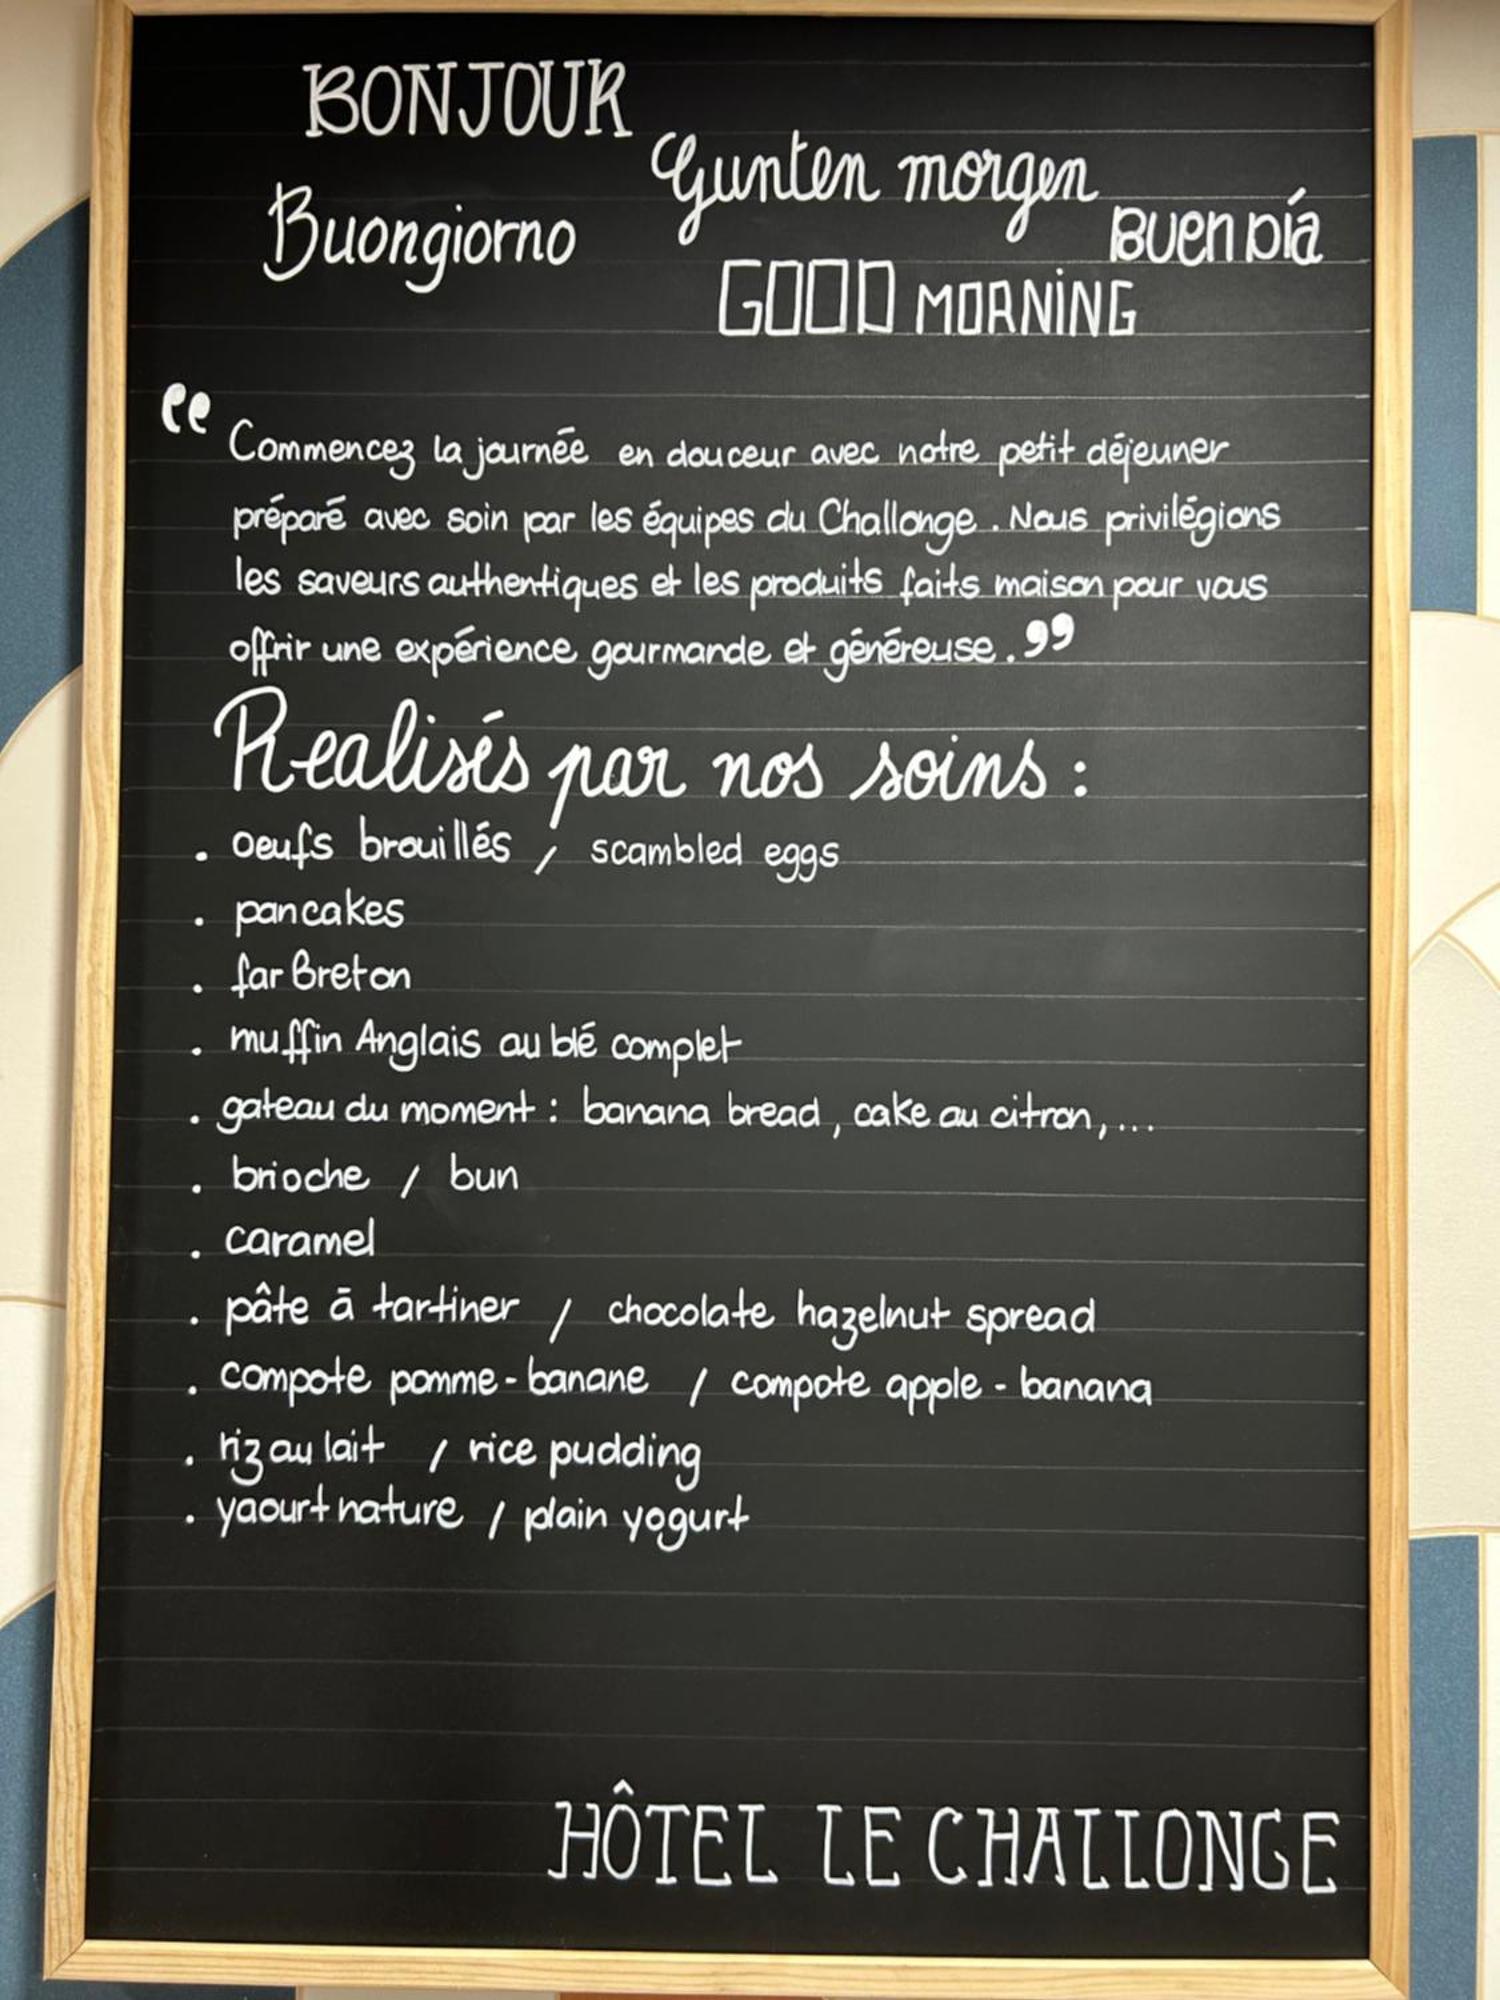 BONJOUR
Gunten morgen
Buongiorno
Buen Día
GOOD MORNING
“ Commencez la journée en douceur avec notre petit déjeuner
préparé avec soin par les équipes du Challonge. Nous privilégions
les saveurs authentiques et les produits faits maison pour vous
offrir une expérience gourmande et généreuse. ”
Realisés par nos soins :
. oeufs brouillés / scambled eggs
. pancakes
. far Breton
. muffin Anglais au blé complet
. gateau du moment : banana bread, cake au citron, ...
. brioche / bun
. caramel
. pâte à tartiner / chocolate hazelnut spread
. compote pomme - banane / compote apple - banana
. riz au lait / rice pudding
. yaourt nature / plain yogurt
HÔTEL LE CHALLONGE